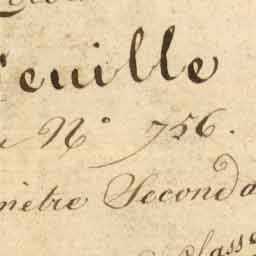 euille
N° 756.
mètre Second
Class